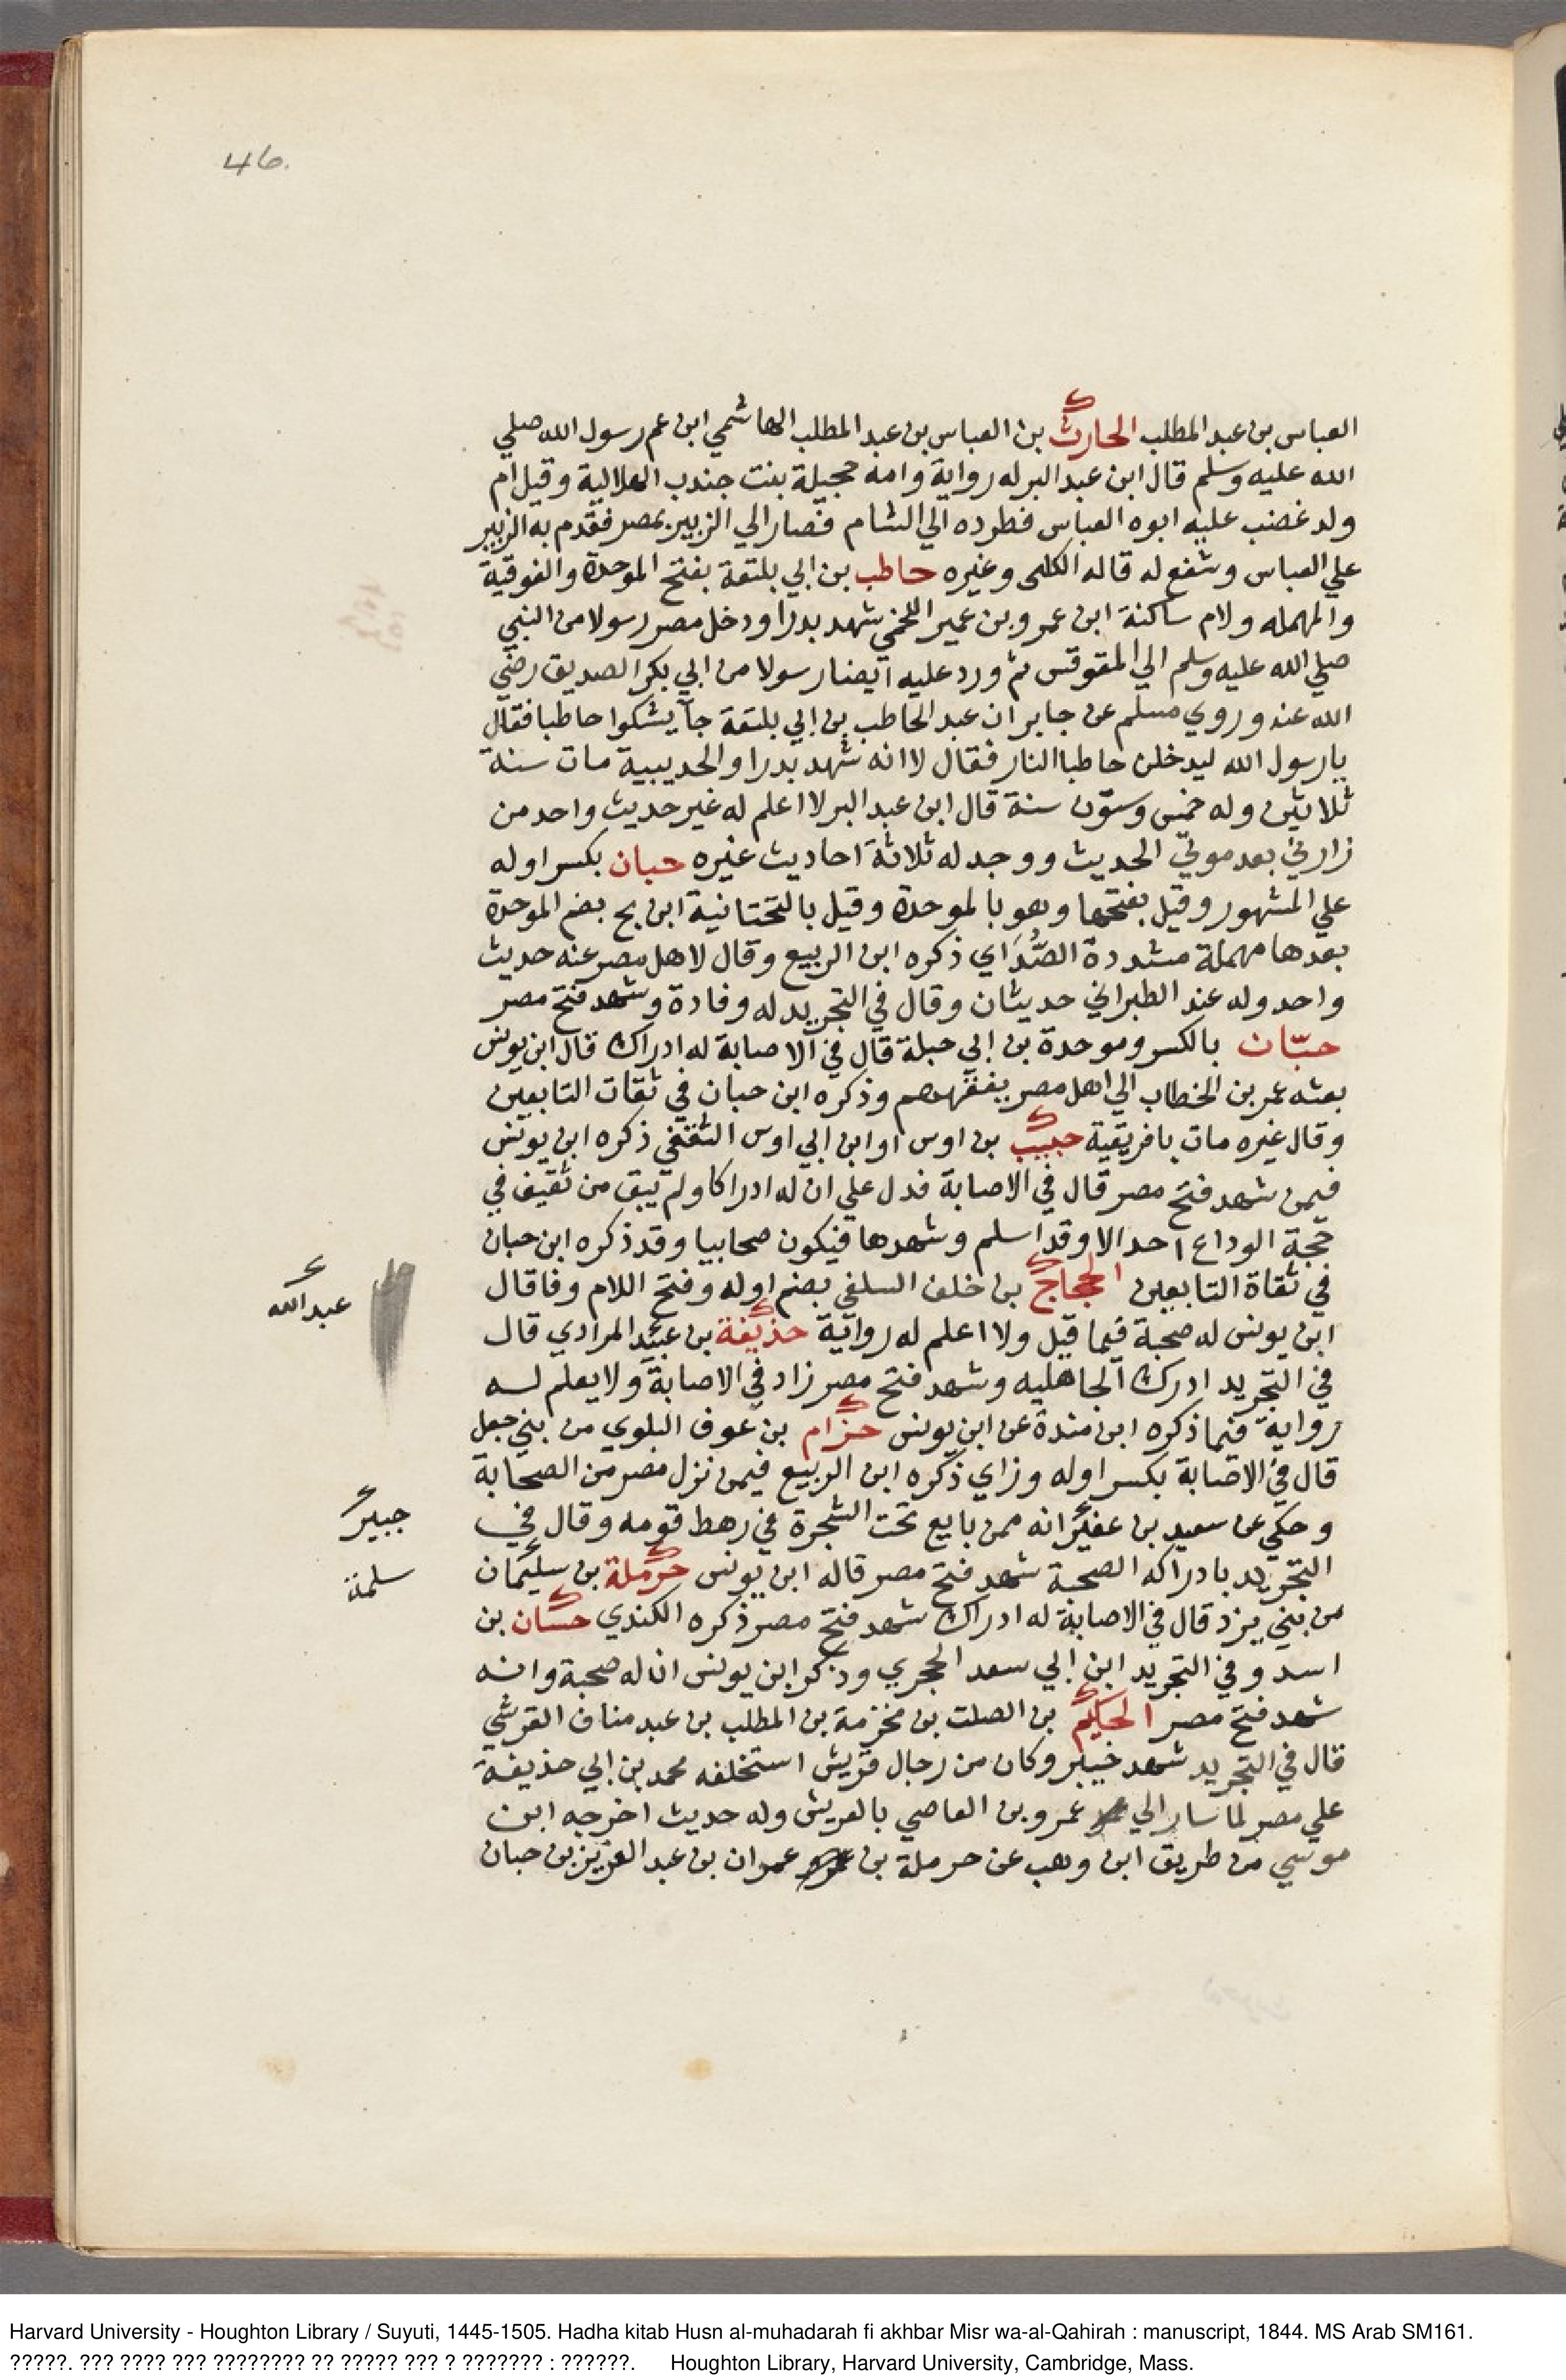 46.
العباس بن عبد المطلب الحارث بن العباس بن عبد المطلب الهاشمي ابن عم رسول الله صلي
الله عليه وسلم قال ابن عبد البر له رواية وامه حجيلة بنت جندب الهلالية وقيل ام
ولد غضب عليه ابوه العباس فطرده الي الشام فصار الي الزبير بمصر فقدم به الزبير
علي العباس وشفع له قاله الكلبى وغيره حاطب بن ابي بلتعة بفتح الموحدة والفوقية
والمهمله ولام ساكنة ابن عمرو بن عمير اللخمي شهد بدرا ودخل مصر رسولا من النبي
صلي الله عليه وسلم الي المقوقس ثم ورد عليه ايضا رسولا من ابي بكر الصديق رضي
الله عنه وروي مسلم عن جابر ان عبد الحاطب بن ابي بلتعة جآ يشكوا حاطبا فقال
يا رسول الله ليدخلن حاطبا النار فقال لا انه شهد بدرا والحديبية مات سنة
ثلاثين وله خمس وستون سنة قال ابن عبد البر لا اعلم له غير حديث واحد من
زارني بعد موتي الحديث ووجد له ثلاثة احاديث غيره حبان بكسر اوله
علي المشهور وقيل بفتحها وهو بالموحدة وقيل بالتحتانية ابن بح بضم الموحدة
بعدها مهملة مشددة الصُّدَاي ذكره ابن الربيع وقال لاهل مصر عنه حديث
واحد وله عند الطبراني حديثان وقال في التجريد له وفادة وشهد فتح مصر
حبّان بالكسر وموحدة بن ابي جبلة قال في الاصابة له ادراك قال ابن يونس
بعثه عمر بن الخطاب الي اهل مصر يفقههم وذكره ابن حبان في ثقات التابعين
وقال غيره مات بافريقية حبيب بن اوس او ابن ابي اوس الثقفي ذكره ابن يونس
فيمن شهد فتح مصر قال في الاصابة فدل علي ان له ادراكا ولم يبق من ثقيف في
حجة الوداع احد الا وقد اسلم وشهدها فيكون صحابيا وقد ذكره ابن حبان
في ثقاة التابعين الحجاج بن خلف السلفي بضم اوله وفتح اللام وفا قال
عبد الله
ابن يونس له صحبة فيما قيل ولا اعلم له رواية حذيفة بن عبيد المرادي قال
في التجريد ادرك الجاهليه وشهد فتح مصر زاد في الاصابة ولا يعلم له
رواية فيما ذكره ابن مندة عن ابن يونس حزام بن عوف البلوي من بني جعل
قال في الاصابة بكسر اوله وزاي ذكره ابن الربيع فيمن نزل مصر من الصحابة
وحكي عن سعيد بن عفير انه ممن بايع تحت الشجرة في رهط قومه وقال في
جبير
التجريد بادراكه الصحبة شهد فتح مصر قاله ابن يونس حرملة بن سليمان
سلمة
من بني يزد قال في الاصابة له ادراك شهد فتح مصر ذكره الكندي حسان بن
اسد وفي التجريد ابن ابي سعد الحجري وذكر ابن يونس ان له صحبة وانه
شهد فتح مصر الحكيم بن الصلت بن مخزمة بن المطلب بن عبد مناف القرشي
قال في التجريد شهد خيبر وكان من رجال قريش استخلفه محمد بن ابي حذيفة
علي مصر لما سار الي عمرو بن العاصي بالعريش وله حديث اخرجه ابن
موسي من طريق ابن وهب عن حرملة بن عمران بن عبد العزيز بن حبان
Harvard University - Houghton Library / Suyuti, 1445-1505. Hadha kitab Husn al-muhadarah fi akhbar Misr wa-al-Qahirah : manuscript, 1844. MS Arab SM161.
?????. ??? ???? ??? ???????? ?? ????? ??? ? ??????? : ??????. Houghton Library, Harvard University, Cambridge, Mass.